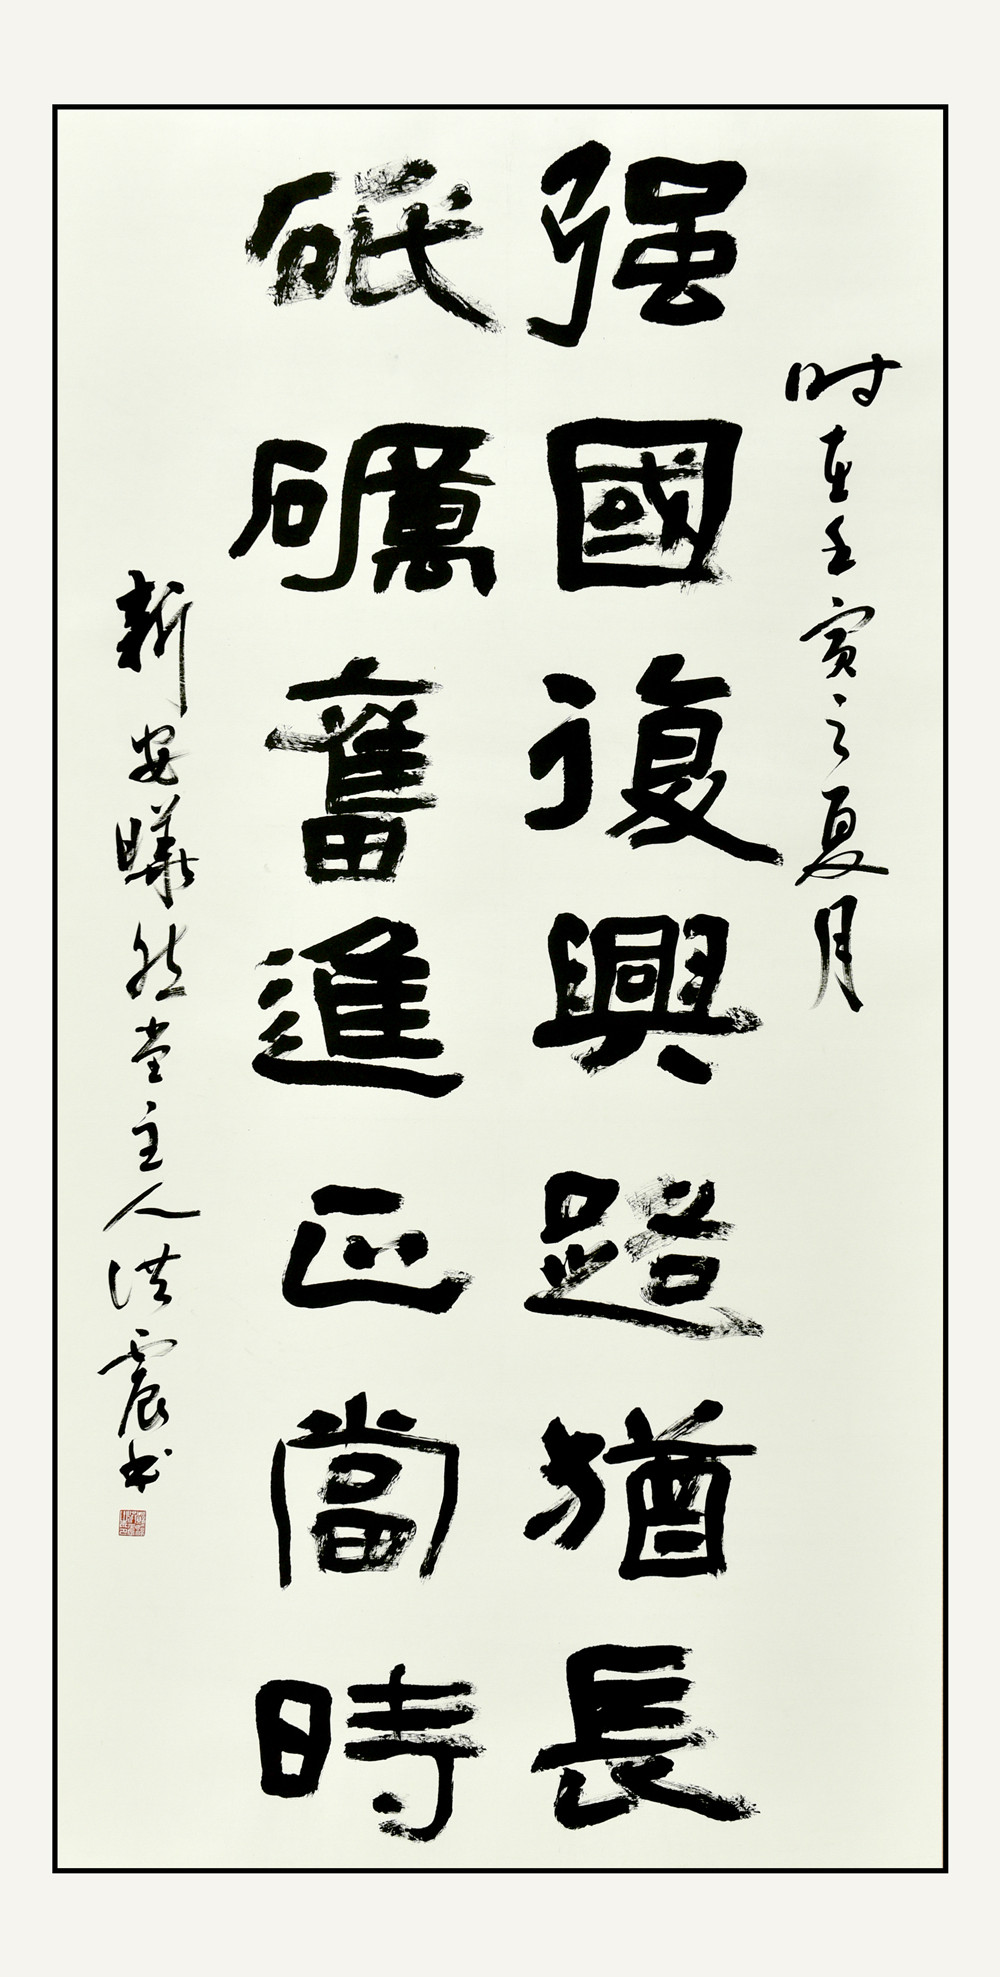 时在壬寅之夏月
强國復興路猶長
砥礪奮進正當時
新安曦然堂主人洪震书